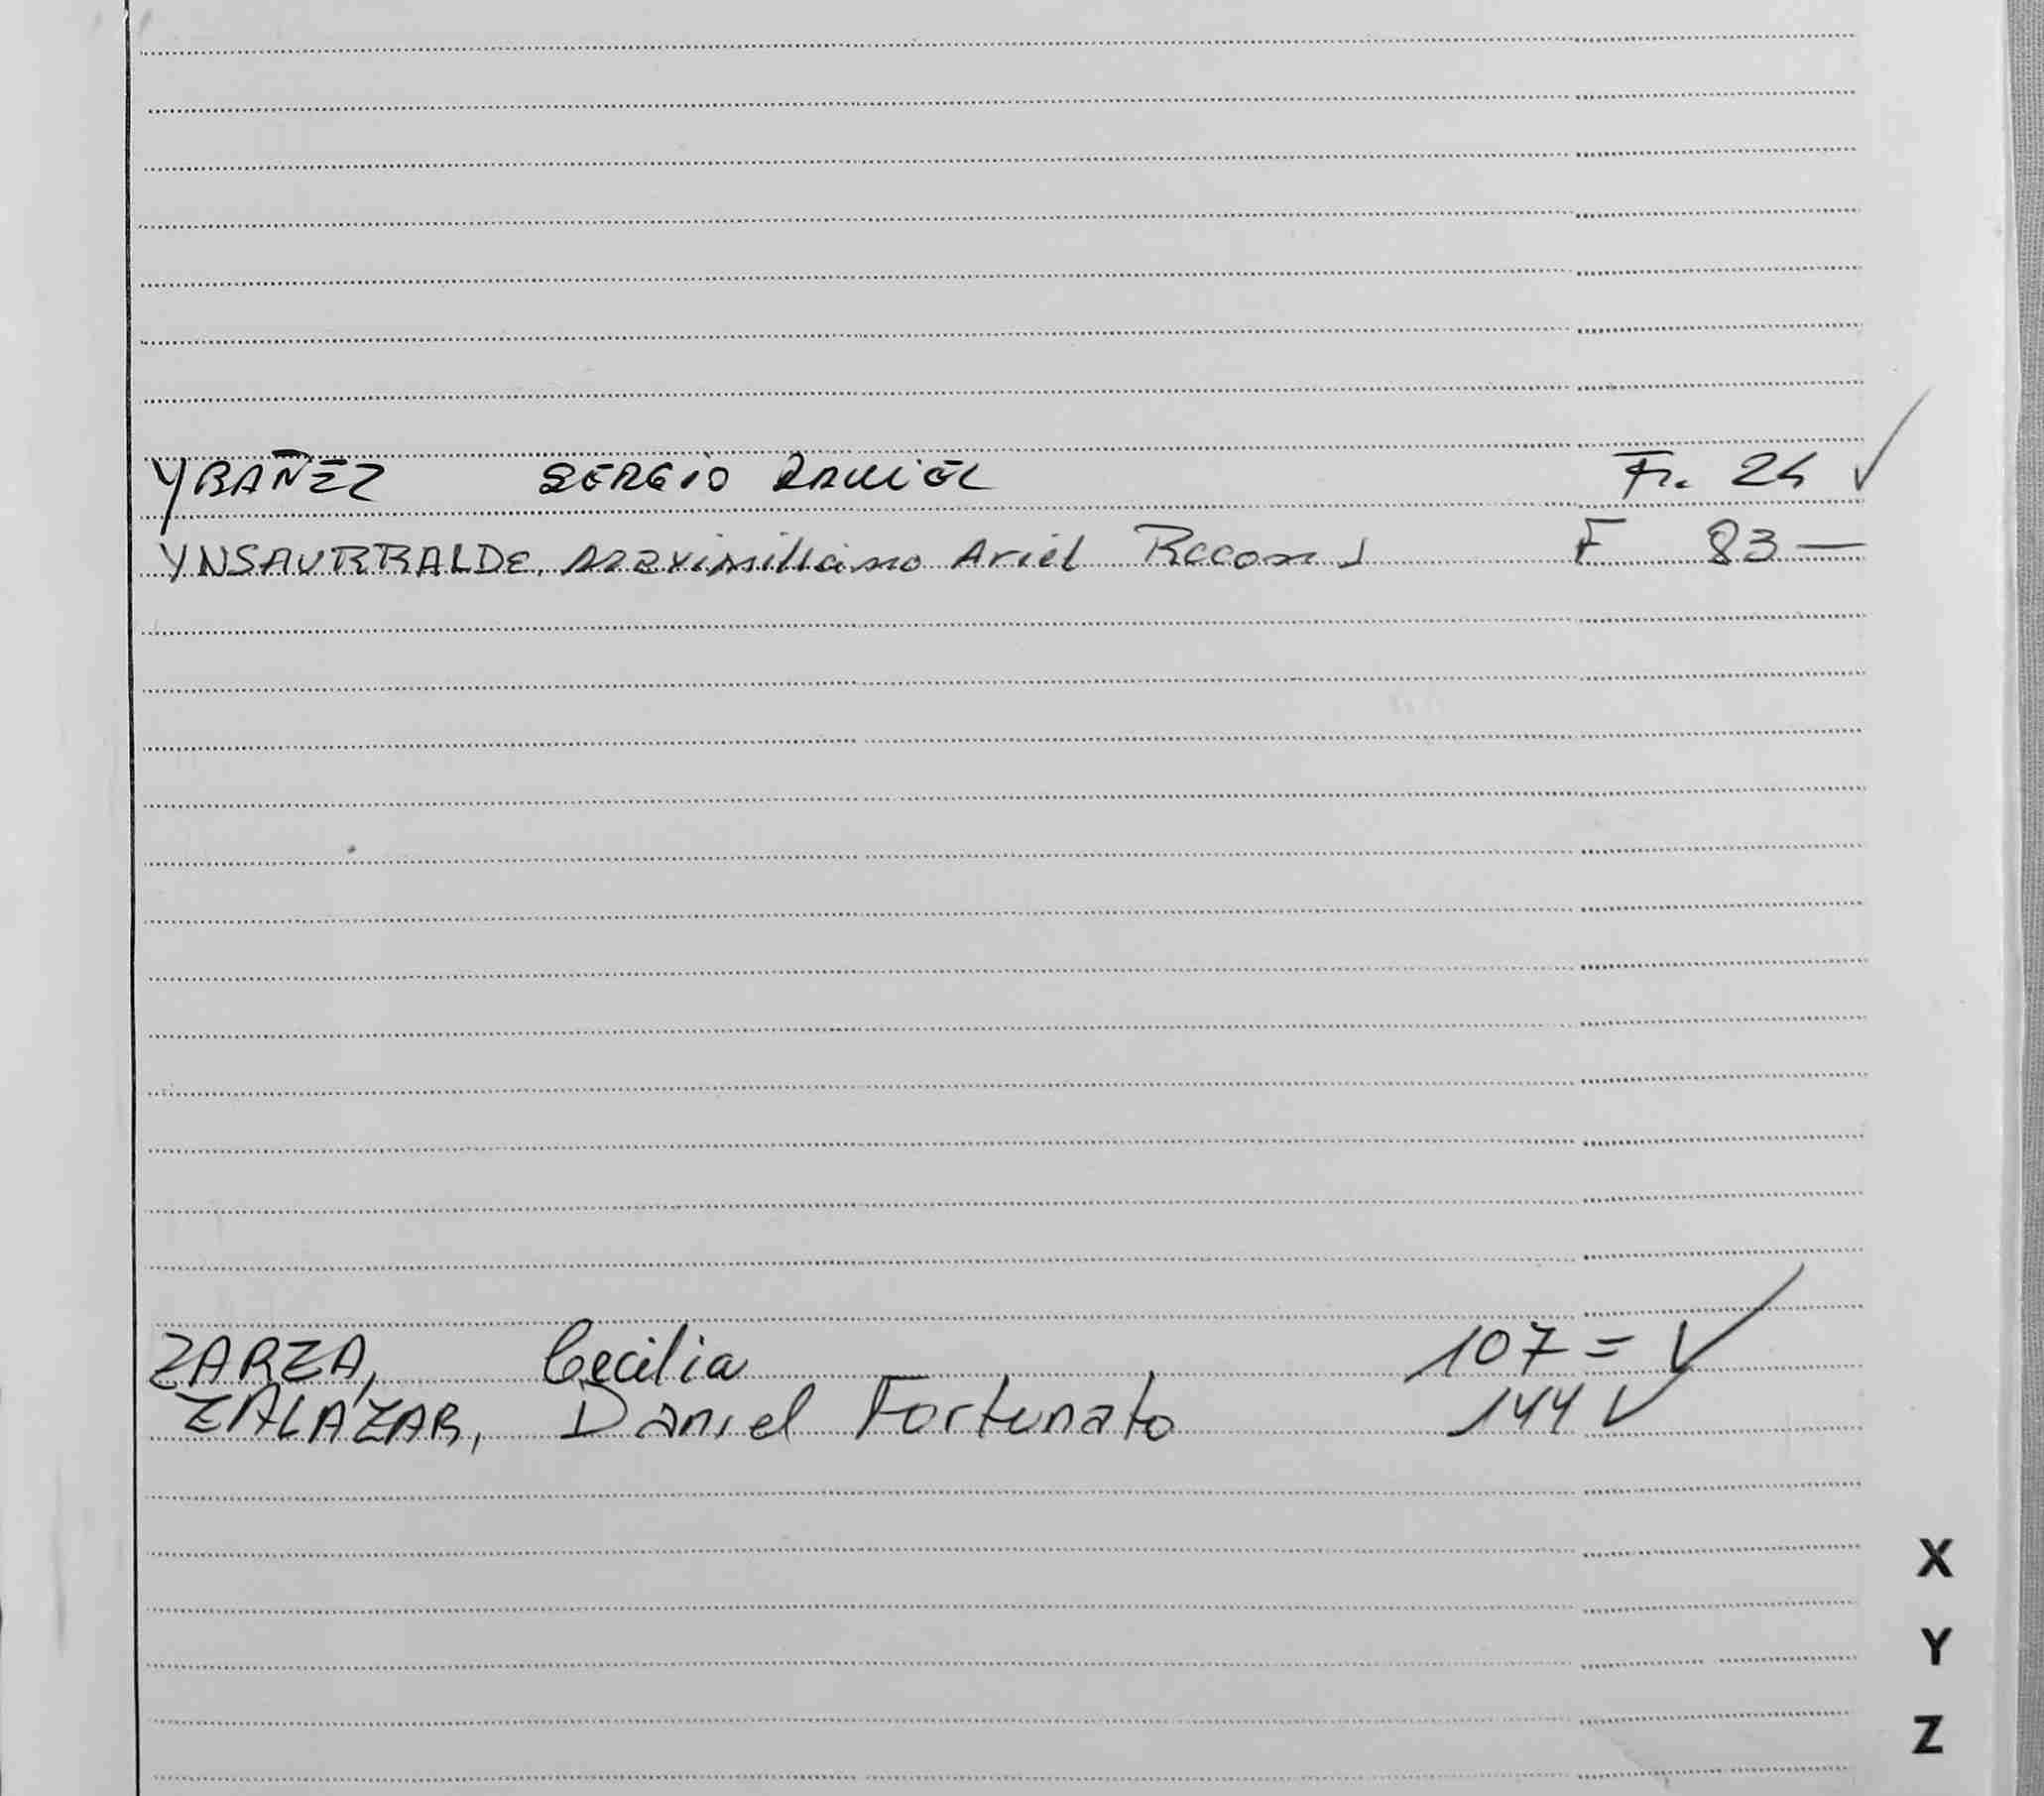 YBAÑEZ SERGIO DANIEL Fr. 24 ✓
YNSAURRALDE, Maximiliano Ariel Reconoc F 83 —
ZARZA, Cecilia 107 = ✓
ZALAZAR, Daniel Fortunato 144 ✓
X
Y
Z